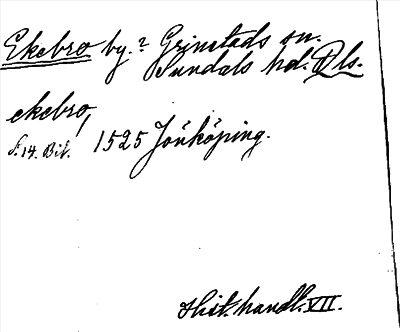 Ekebro by.? Grinstads sn.
Sundals hd. Dls.
ekebro,
f. 14. Bil. 1525 Jönköping.
Hist. handl. VII.